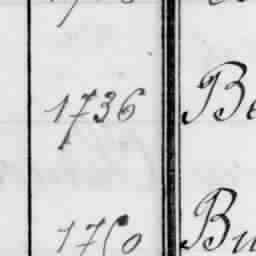 1736 Be
1750 Bu